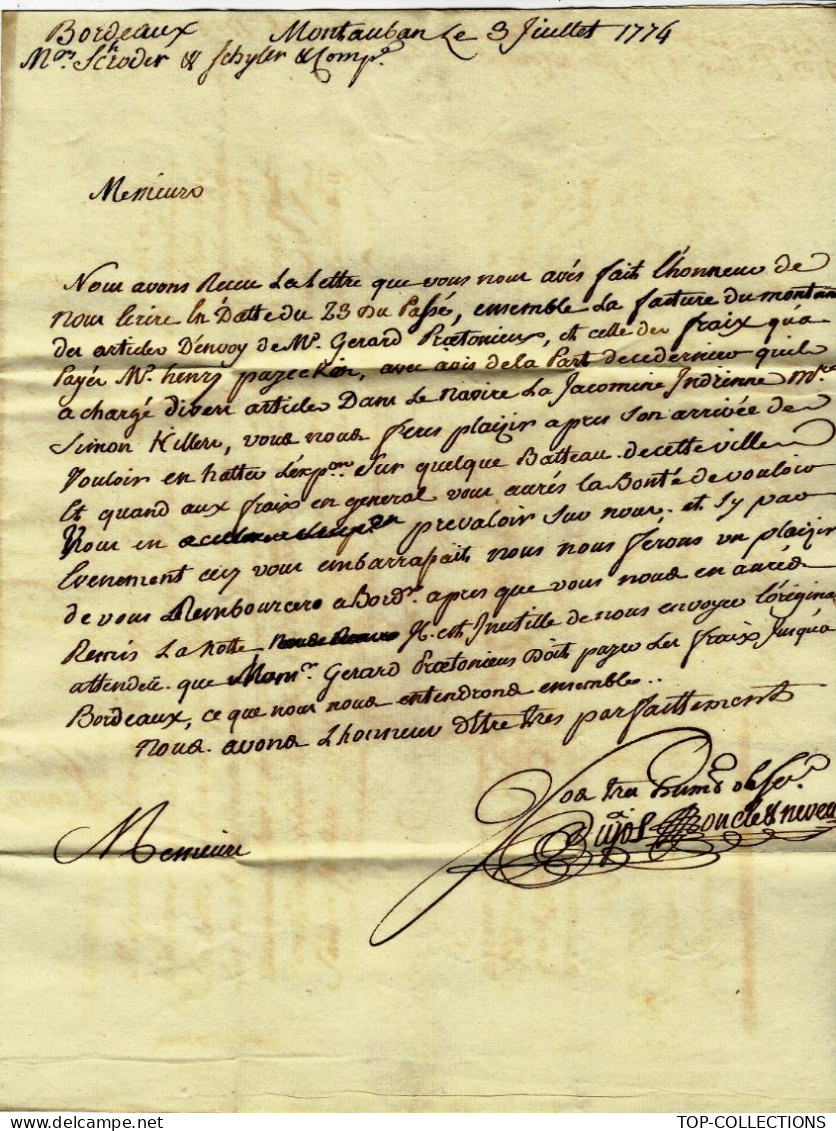 Bordeaux Montauban Le 3 Juillet 1774
Mrs. Scroder & Schyler & Compe.
Messieurs
Nous avons Receu La Lettre que vous nous avés fait l'honneur de
nous Ecrire En Datte du 23 Du Passé, ensemble La facture du montan
des articles D'envoy de Mr. Gerard Prœtonieus, et celle des fraix qu'a
Payés Mr. henry, avec avis de la Part de ce dernier quil
a chargé divers articles Dans Le navire La Jacomine Indrienne Mtre
Simon Killers, vous nous feres plaizir apres son arrivée de
Vouloir en hatter L'expon. Sur quelque Batteau de cette ville
Et quand aux fraix en general vous aurés la Bonté de vouloir
Vous en prevaloir sur nous. et sy par
Evenement cecy vous embarrassait nous nous ferons un plaizir
de vous Rembourcer a Bordx. apres que vous nous en aurés
Remis La notte Il est Inutille de nous envoyer L'origina
attendeu que Monsr. Gerard Prœtonieus Doit payer Les fraix Jusqu'a
Bordeaux, ce que nous nous entendrons ensemble..
Nous avons L'honneur d'Etre tres parfaittement
Vos tres humbs. obt. serv.
Messieurs
Bujos Loncle & neveu
TOP-COLLECTIONS